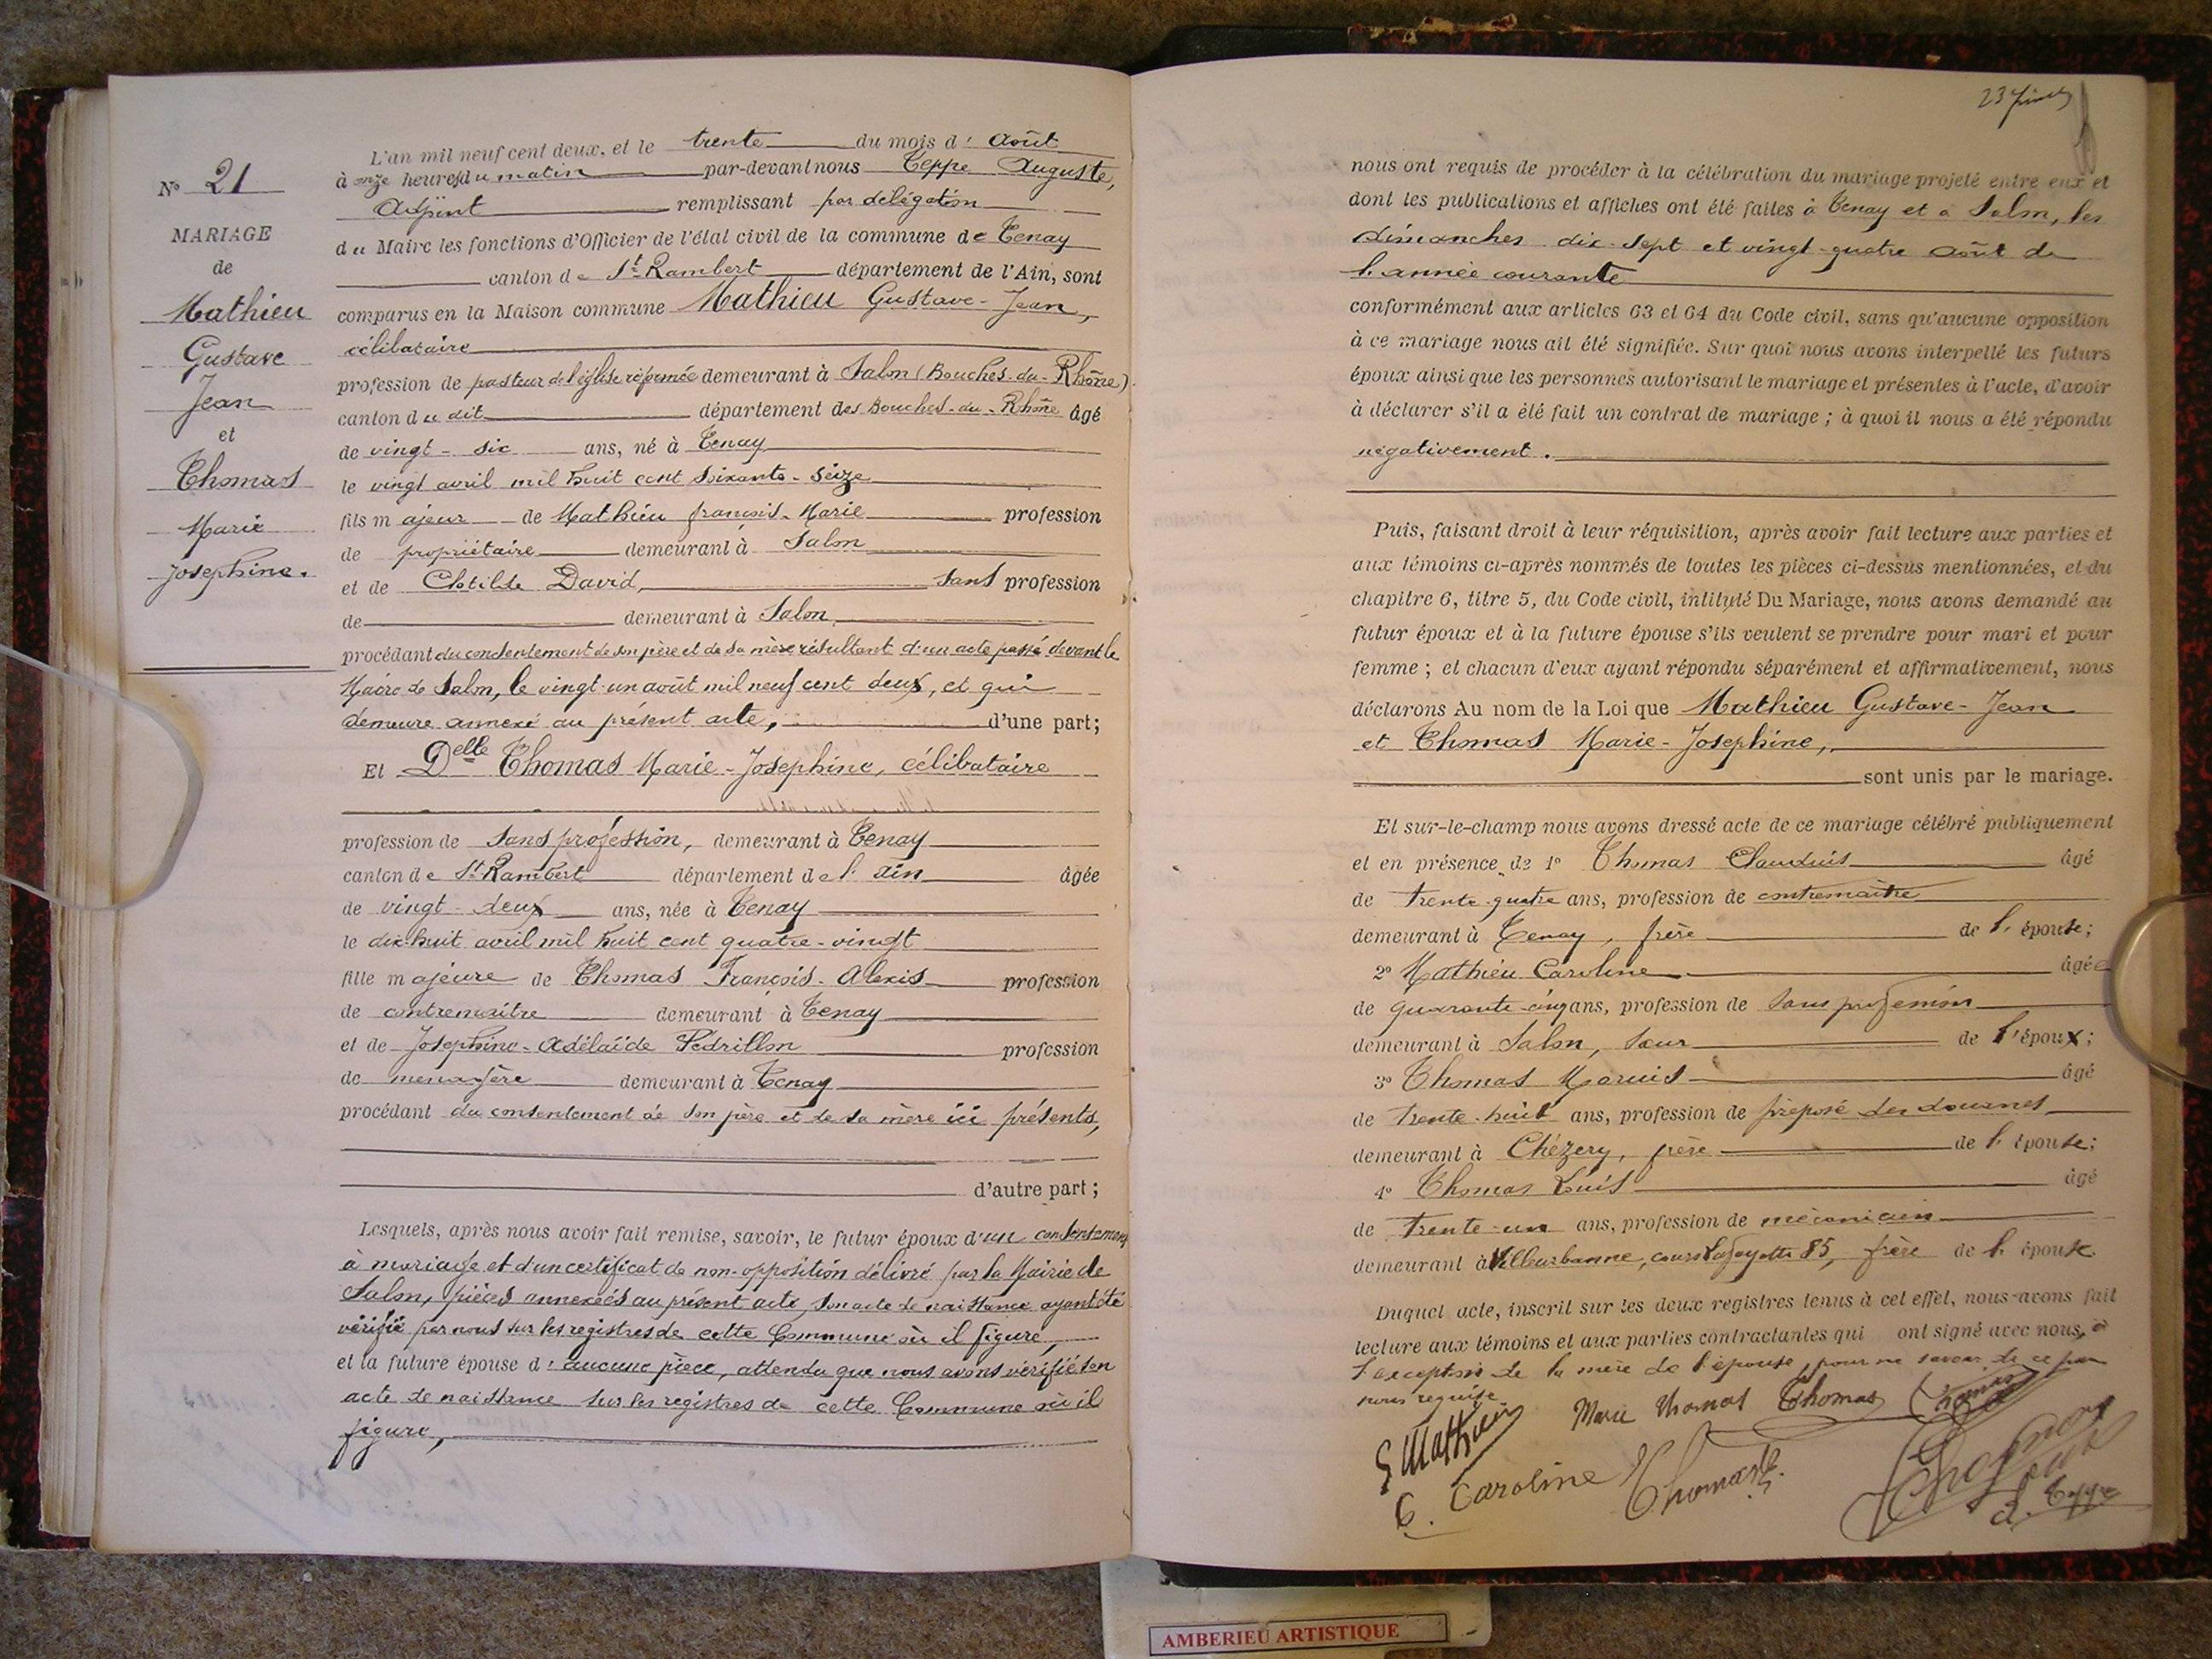 N° 21
MARIAGE
de
Mathieu
Gustave
Jean
et
Thomas
Marie
Josephine.
L'an mil neuf cent deux, et le trente du mois d' Août
à onze heures du matin par-devant nous Teppe Auguste,
Adjoint remplissant par délégation
du Maire les fonctions d'Officier de l'état civil de la commune de Tenay
canton de St Rambert département de l'Ain, sont
comparus en la Maison commune Mathieu Gustave-Jean,
célibataire
profession de pasteur de l'église réformée demeurant à Salon (Bouches-du-Rhône)
canton du dit département des Bouches-du-Rhône âgé
de vingt-six ans, né à Tenay
le vingt avril mil huit cent soixante-seize
fils majeur de Mathieu françois-Marie profession
de propriétaire demeurant à Salon
et de Clotilde David, sans profession
de demeurant à Salon,
procédant du consentement de son père et de sa mère résultant d'un acte passé devant le
Maire de Salon, le vingt-un août mil neuf cent deux, et qui
demeure annexé au présent acte, d'une part;
Et Delle Thomas Marie-Josephine, célibataire
profession de sans profession, demeurant à Tenay
canton de St Rambert département de l'Ain âgée
de vingt-deux ans, née à Tenay
le dix-huit avril mil huit cent quatre-vingt
fille majeure de Thomas François-Alexis profession
de contremaître demeurant à Tenay
et de Josephine-Adélaïde Pedrillon profession
de menagère demeurant à Tenay
procédant du consentement de son père et de sa mère ici présents,
d'autre part;
Lesquels, après nous avoir fait remise, savoir, le futur époux d'un consentement
à mariage et d'un certificat de non-opposition délivré par la Mairie de
Salon, pièces annexées au présent acte, son acte de naissance ayant été
vérifié par nous sur les registres de cette Commune où il figure,
et la future épouse d'aucune pièce, attendu que nous avons vérifié son
acte de naissance sur les registres de cette Commune où il
figure,
nous ont requis de procéder à la célébration du mariage projeté entre eux et
dont les publications et affiches ont été faites à Tenay et à Salon, les
dimanches dix-sept et vingt-quatre Août de
l'année courante
conformément aux articles 63 et 64 du Code civil, sans qu'aucune opposition
à ce mariage nous ait été signifiée. Sur quoi nous avons interpellé les futurs
époux ainsi que les personnes autorisant le mariage et présentes à l'acte, d'avoir
à déclarer s'il a été fait un contrat de mariage; à quoi il nous a été répondu
négativement.
Puis, faisant droit à leur réquisition, après avoir fait lecture aux parties et
aux témoins ci-après nommés de toutes les pièces ci-dessus mentionnées, et du
chapitre 6, titre 5, du Code civil, intitulé Du Mariage, nous avons demandé au
futur époux et à la future épouse s'ils veulent se prendre pour mari et pour
femme; et chacun d'eux ayant répondu séparément et affirmativement, nous
déclarons Au nom de la Loi que Mathieu Gustave-Jean
et Thomas Marie-Josephine,
sont unis par le mariage.
Et sur-le-champ nous avons dressé acte de ce mariage célébré publiquement
et en présence de 1° Thomas Claudius âgé
de trente-quatre ans, profession de contremaître
demeurant à Tenay, frère de l'épouse;
2° Mathieu Caroline âgée
de quarante-cinq ans, profession de sans profession
demeurant à Salon, sœur de l'époux;
3° Thomas Marius âgé
de trente-huit ans, profession de préposé des douanes
demeurant à Chézery, frère de l'épouse;
4° Thomas Louis âgé
de trente-un ans, profession de mécanicien
demeurant à Villeurbanne, cours Lafayette 85, frère de l'épouse.
Duquel acte, inscrit sur les deux registres tenus à cet effet, nous avons fait
lecture aux témoins et aux parties contractantes qui ont signé avec nous, à
l'exception de la mère de l'épouse, pour ne savoir de ce par
nous requise
G Mathieu Marie Thomas Thomas Thomas
C. Caroline Thomas
Thomas Louis
A. Teppe
AMBERIEU ARTISTIQUE